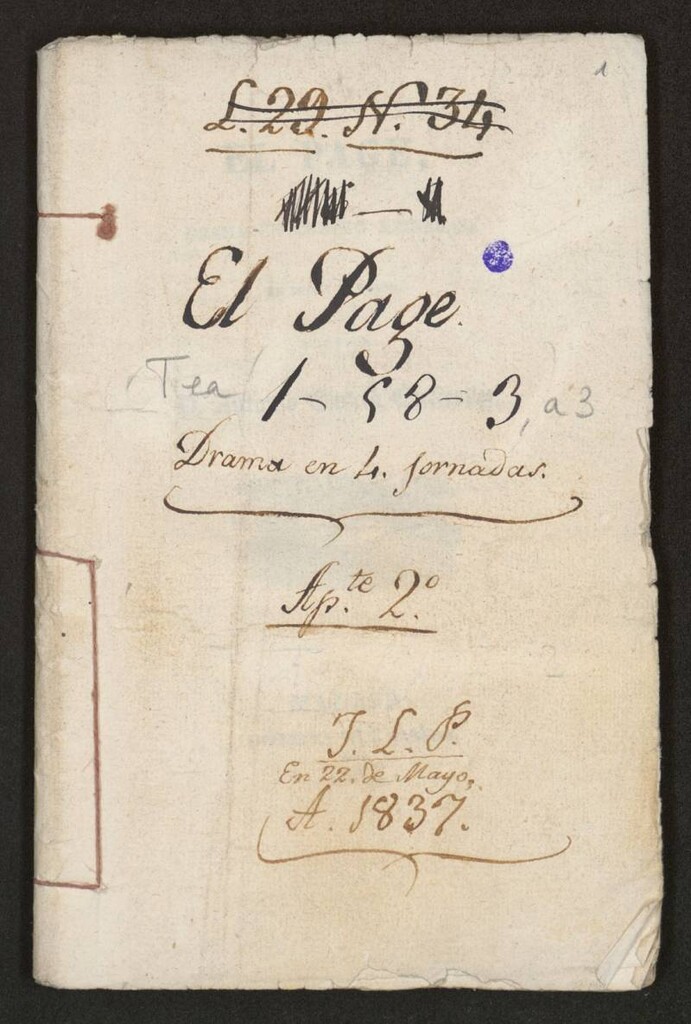 1
L. 29. N. 34.
El Page.
Tea 1-58-3, a 3
Drama en 4. Jornadas.
Ap.te 2.o
J. L. P.
En 22. de Mayo,
A. 1837.